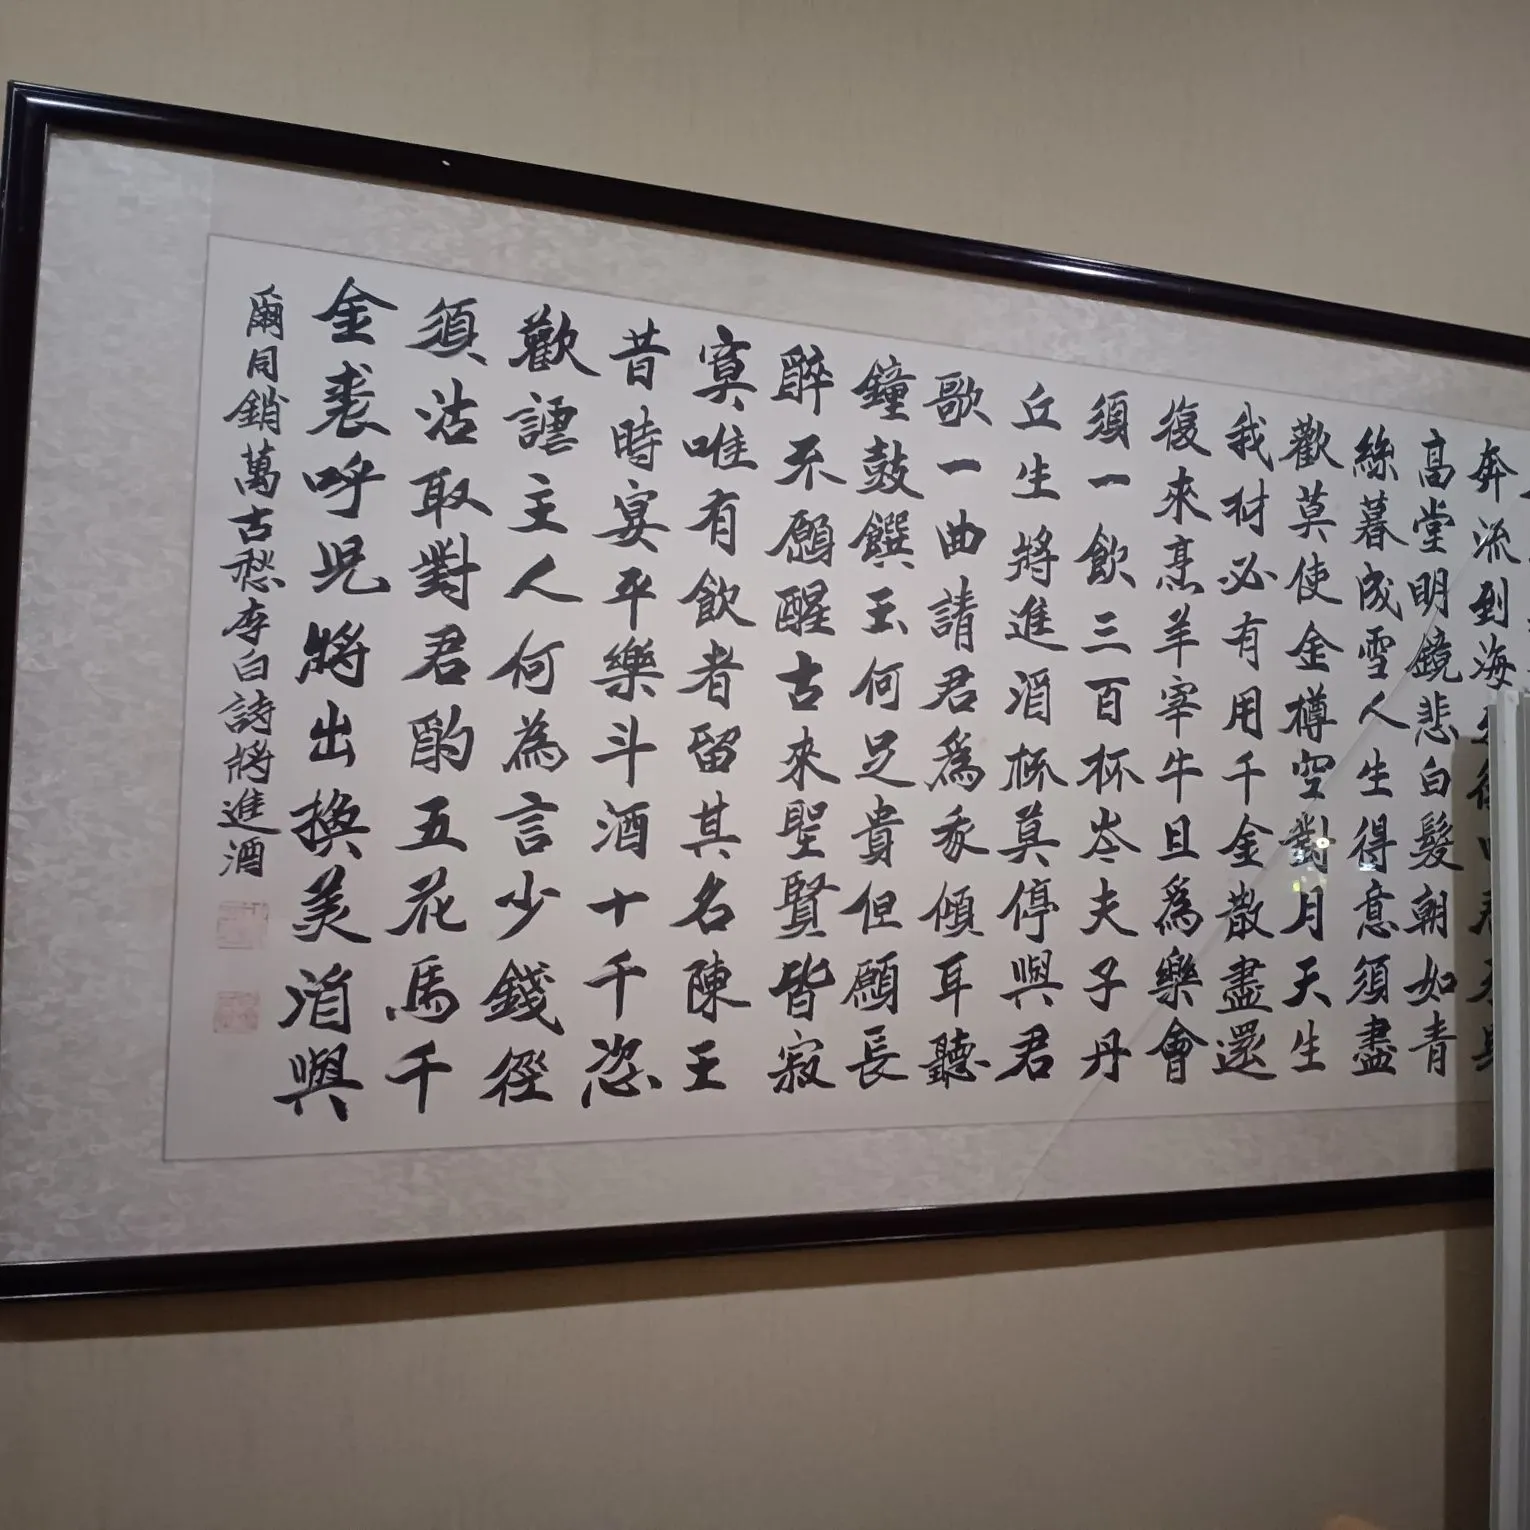 奔流到海
高堂明鏡悲白髮朝如青
絲暮成雪人生得意須盡
歡莫使金樽空對月天生
我材必有用千金散盡還
復來烹羊宰牛且爲樂會
須一飲三百杯岑夫子丹
丘生將進酒杯莫停與君
歌一曲請君爲我傾耳聽
鐘鼓饌玉何足貴但願長
醉不願醒古來聖賢皆寂
寞唯有飲者留其名陳王
昔時宴平樂斗酒十千恣
歡謔主人何為言少錢徑
須沽取對君酌五花馬千
金裘呼兒將出換美酒與
爾同銷萬古愁李白詩將進酒